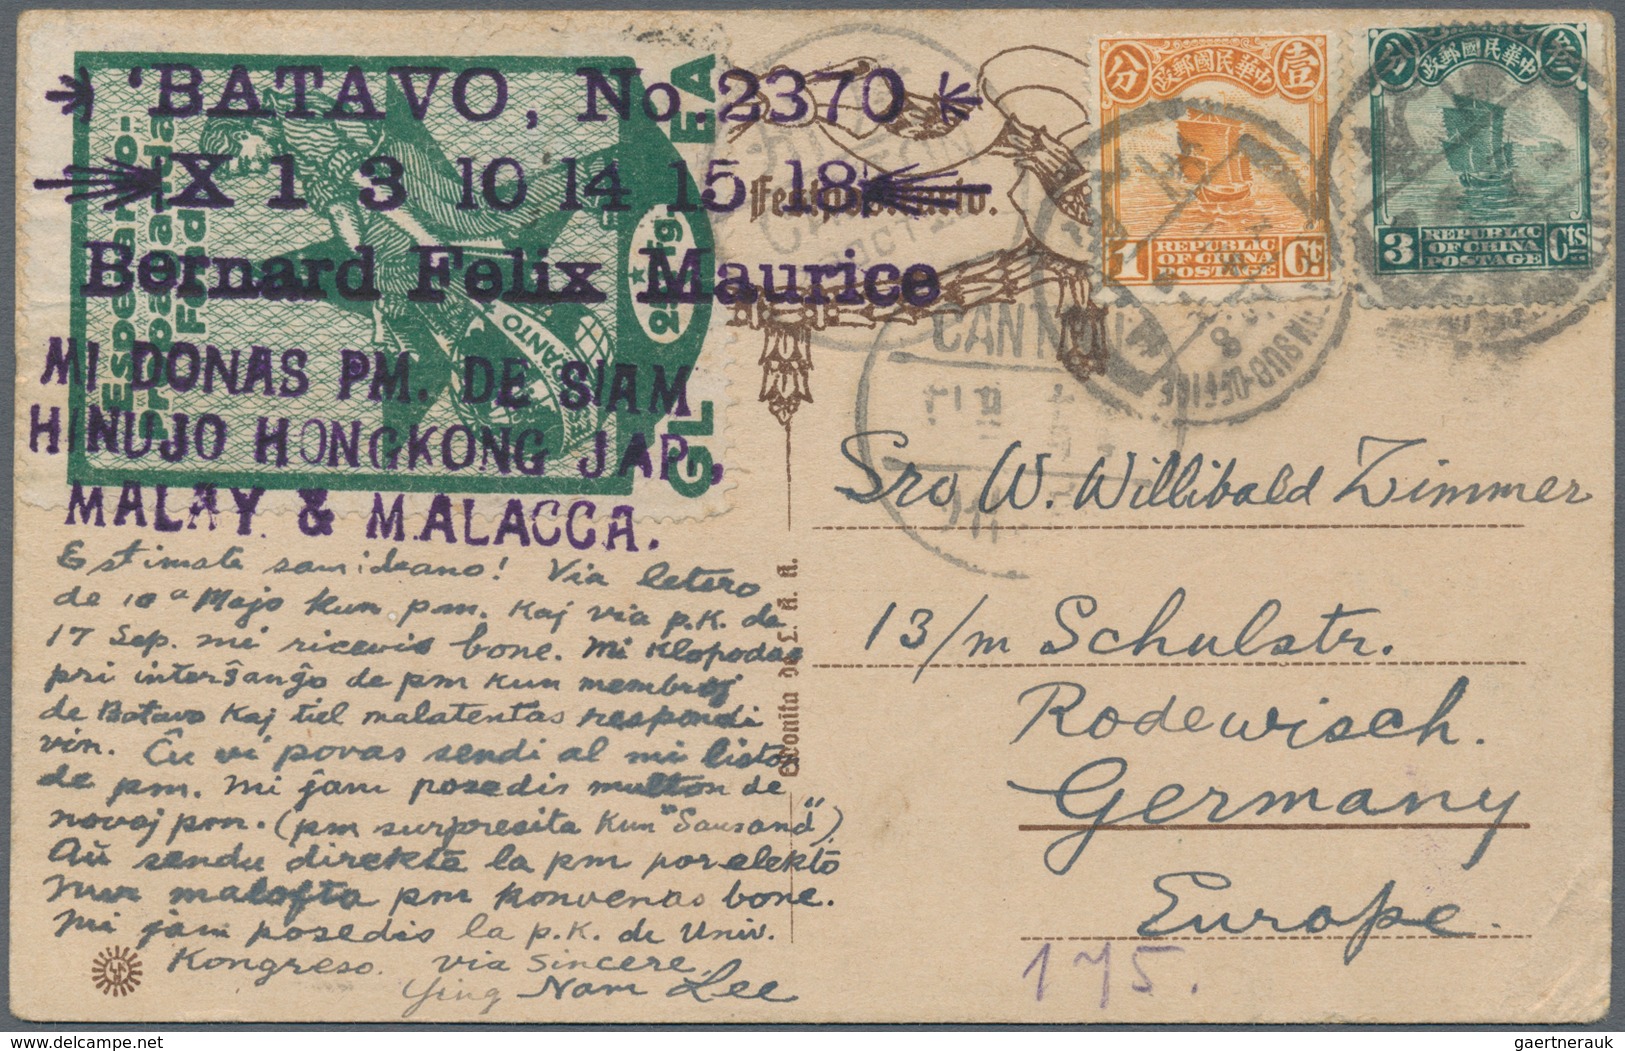 'BATAVO, No. 2370
X 1 3 10 14 15 18
Bernard Felix Maurice
MI DONAS PM. DE SIAM
HINUJO HONGKONG JAP,
MALAY. & MALACCA.
Esperanto-
Propaganda
Fond
2 Fg.
GL EA
ESPERANTO
Estimata samideano! Via letero
de 10ª Majo kun pm. kaj via p.K. de
17 Sep. mi ricevis bone. Mi klopodas
pri interŝanĝo de pm kun membroj
de Batavo kaj tiel malatentas respondi
vin. Ĉu vi povas sendi al mi liston
de pm. mi jam posedis multon de
novaj pm. (pm surpresita kun "Saurand")
Aŭ sendu direkte la pm por elekto
malofta pm konvenas bone.
Mi jam posedis la p.K. de Univ.
Kongreso. via sincere,
Ying Nam Lee
Festpos
Eldonita de
中華民國郵政
壹
分
REPUBLIC
OF CHINA
POSTAGE
1 Ct.
中華民國郵政
叁
分
REPUBLIC
OF CHINA
POSTAGE
3 Cts
CANTON
SUB-OFFICE
8
Sro W. Willibald Zimmer
13/m Schulstr.
Rodewisch.
Germany
Europe.
175.
gaertnerauk